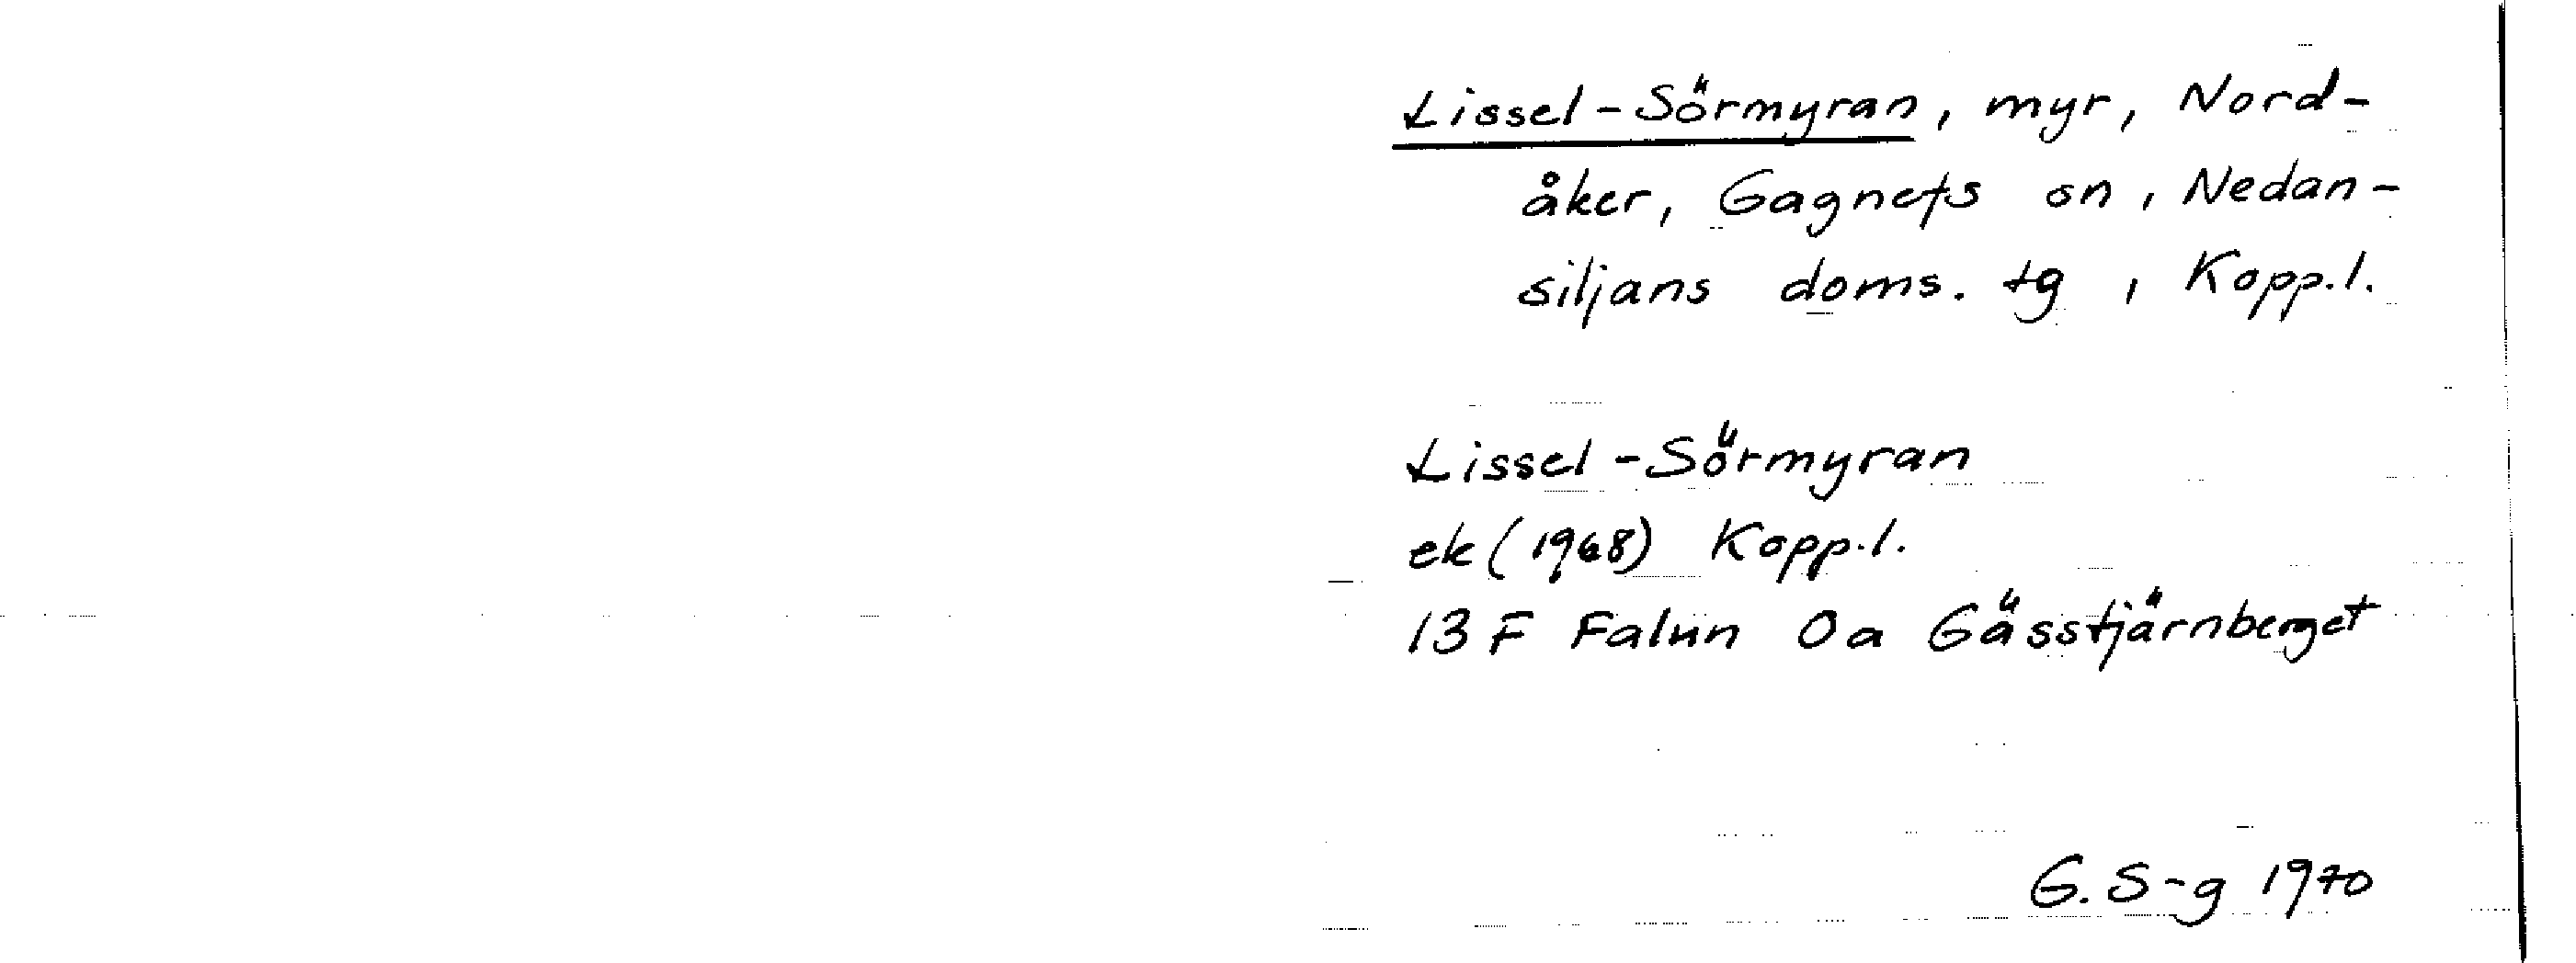 Lissel-Sörmyran, myr, Nord-
åker, Gagnefs sn, Nedan-
siljans doms. tg, Kopp.l.
Lissel-Sörmyran
ek (1968) Kopp.l.
13 F Falun 0a Gässtjärnberget
G. S-g 1970